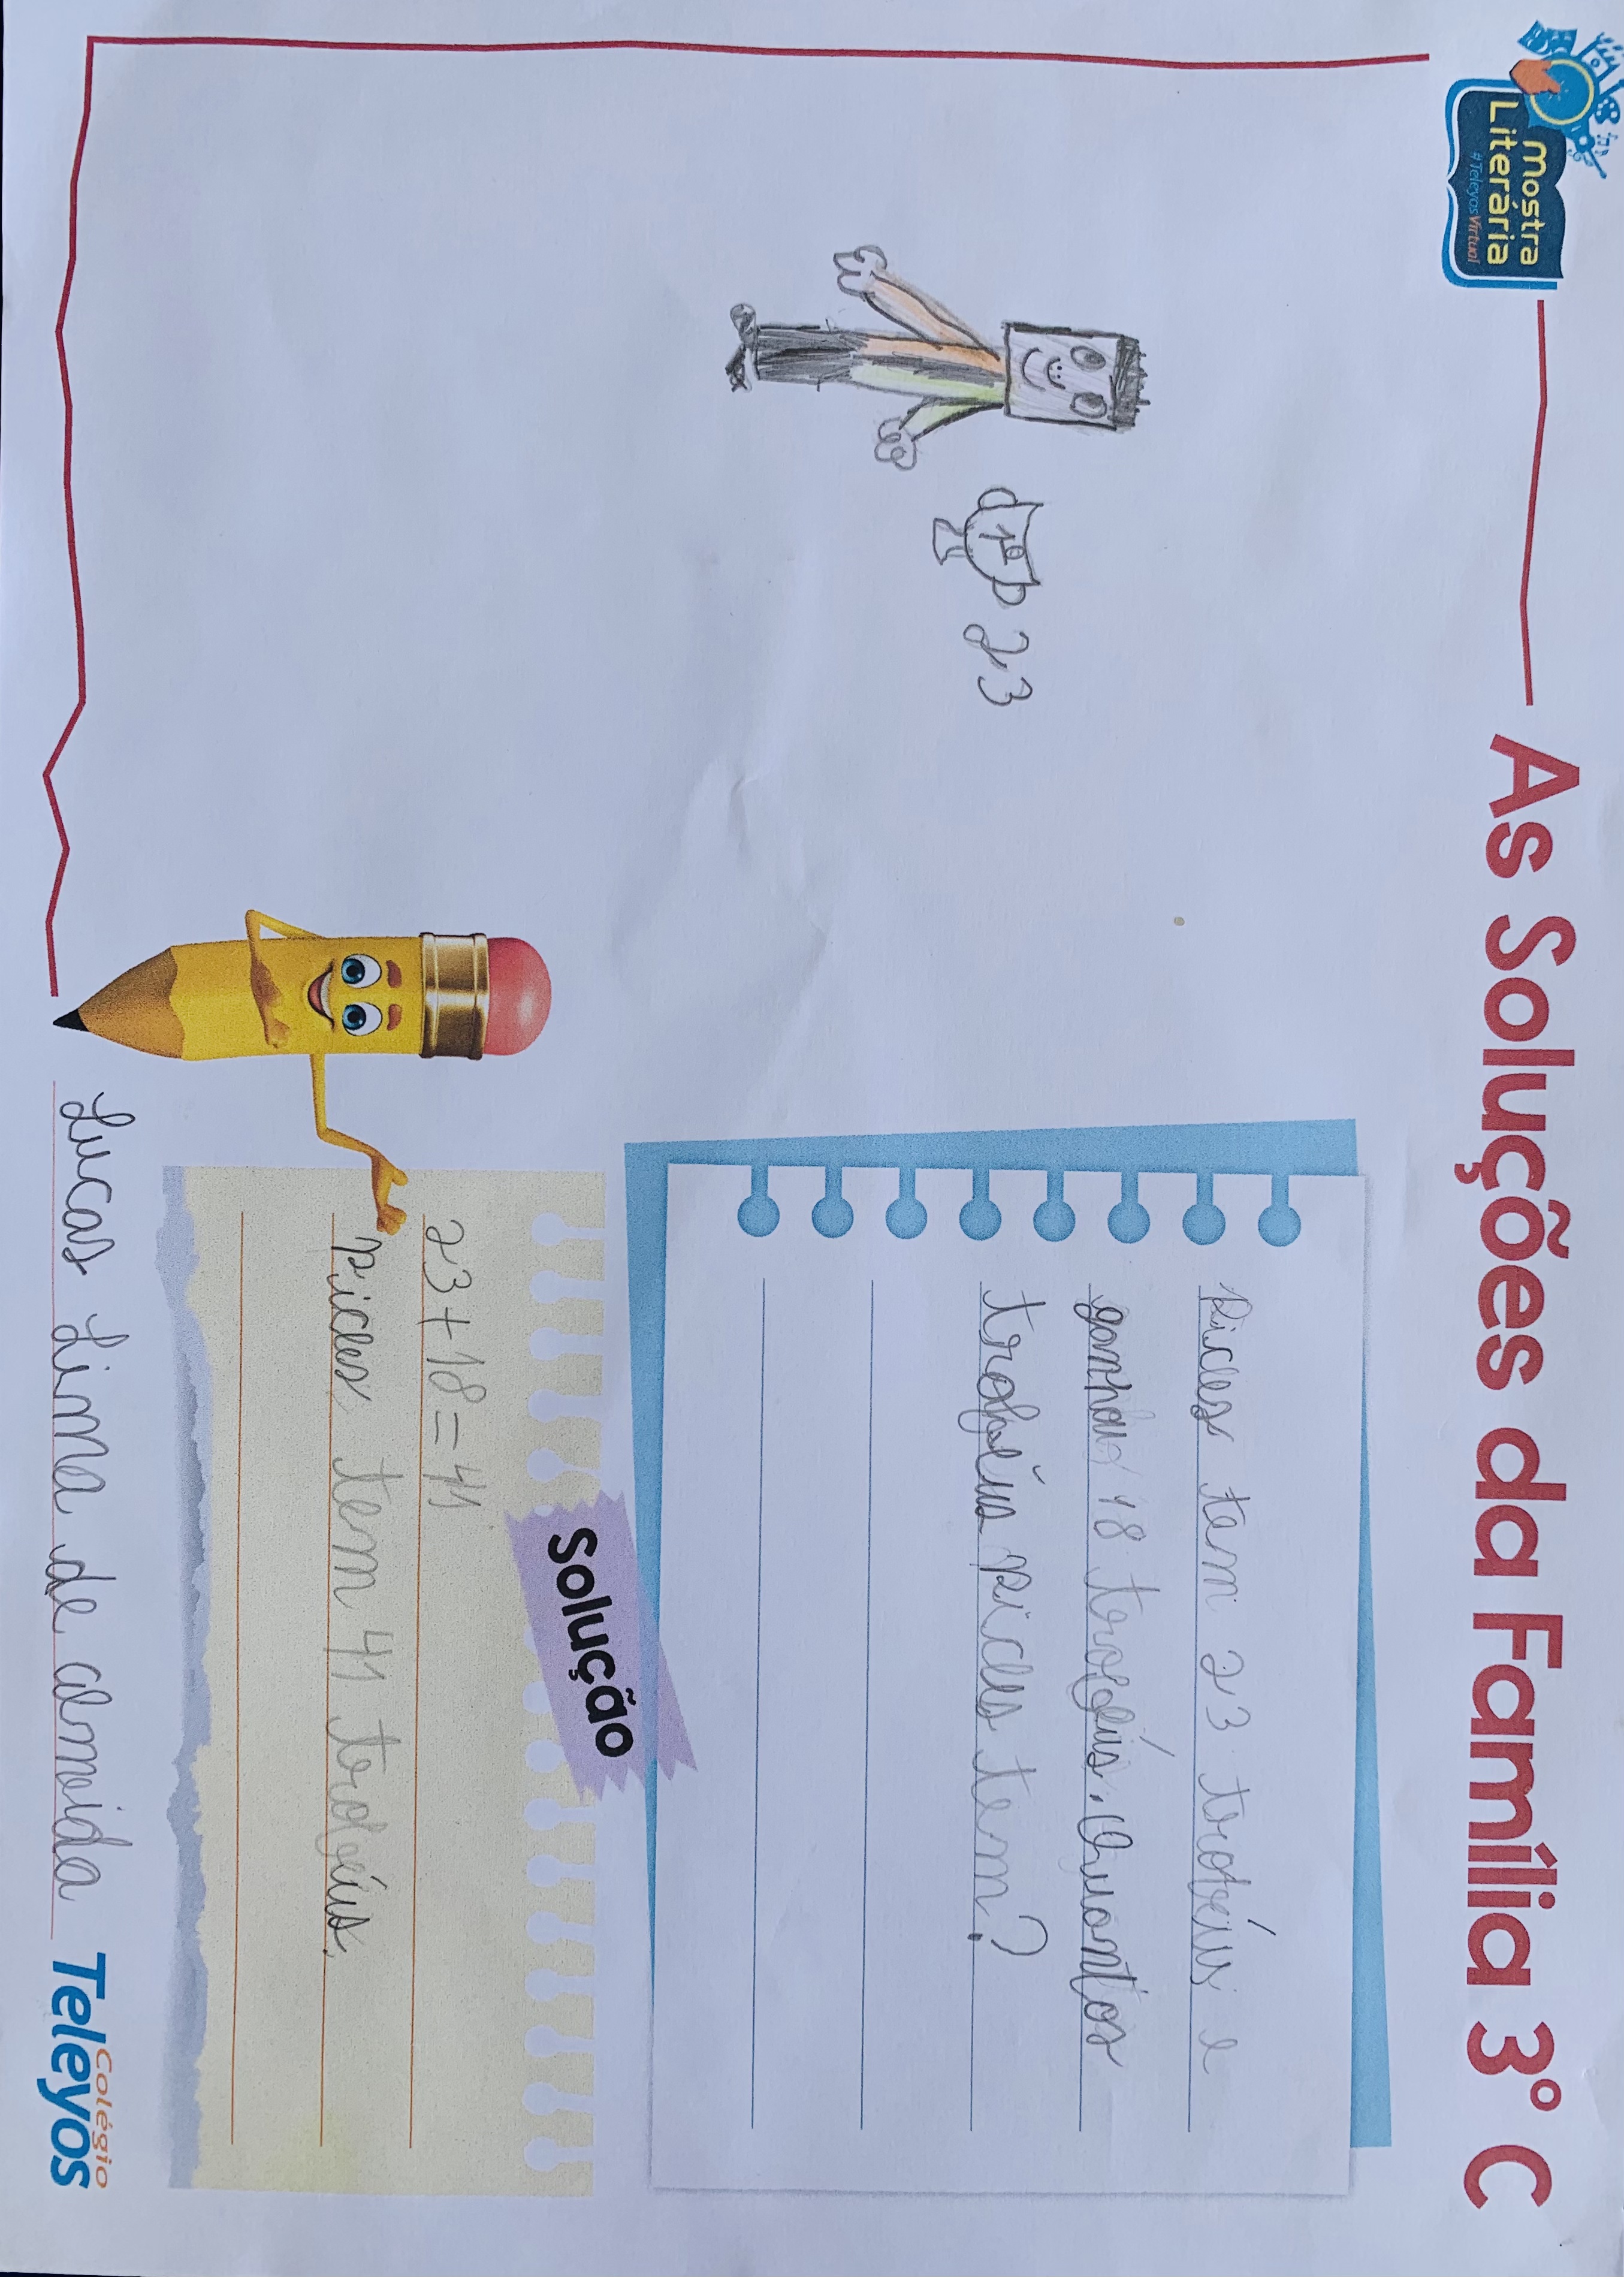 Mostra
Literária
#TeleyosVirtual
As Soluções da Família 3º C
1º
23
Picles tem 23 troféus e
ganhou 18 troféus. Quantos
troféus picles tem?
Solução
23+18=41
Picles tem 41 troféus.
Lucas Lima de almeida
Colégio
Teleyos